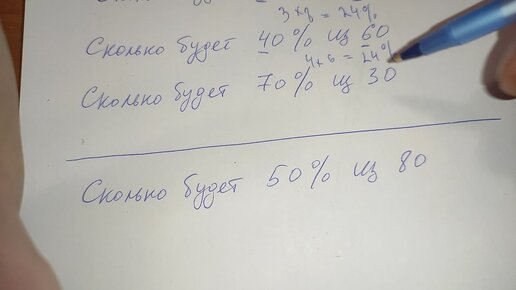 3 x 8 = 24%
Сколько будет 40% из 60
4 x 6 = 24%
Сколько будет 70% из 30
Сколько будет 50% из 80